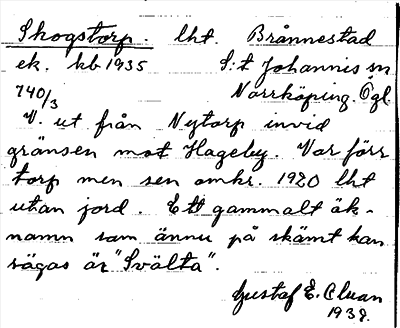 Skogstorp. lht. Brånnestad
ek. kb 1935 S:t Johannis sn
740/3 Norrköping. Ögl.
V. ut från Nytorp invid
gränsen mot Hageby. Var förr
torp men sen omkr. 1920 lht
utan jord. Ett gammalt ök-
namn som ännu på skämt kan
sägas är "Svälta".
Gustaf E. Cluan
1938.